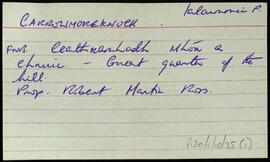 CARROWMOREKNOCK. Kilcummin P.
FNB Ceathramhadh Mhór a
chnuic - Great quarter of the
hill.
Prop. Robert Martin Ross.
P120/1/10/35 (1)